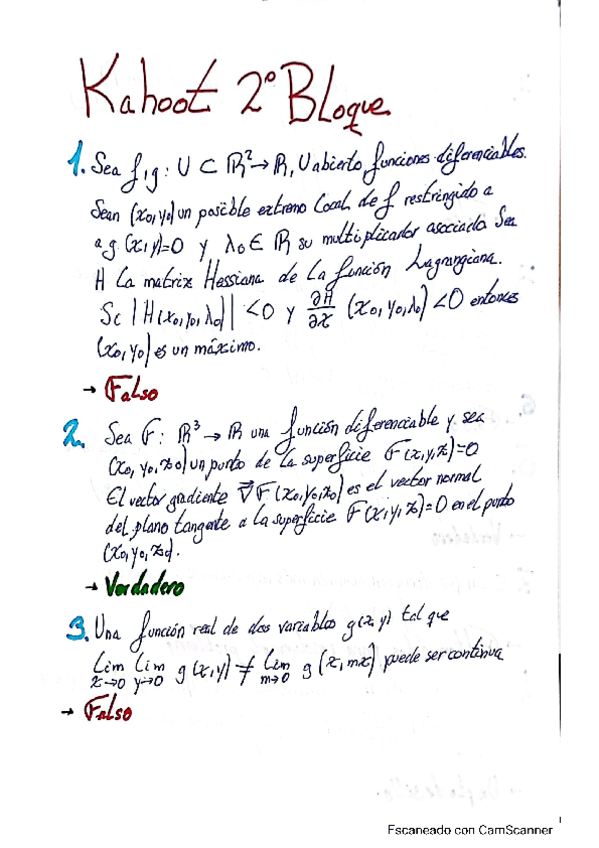 Kahoot 2º Bloque
1. Sea f,g: U ⊂ ℝ² → ℝ, U abierto, funciones diferenciables.
Sean (x₀,y₀) un posible extremo local de f restringido a
a g(x,y)=0 y λ₀ ∈ ℝ su multiplicador asociado. Sea
H la matriz Hessiana de la función Lagrangiana.
Sc |H(x₀,y₀,λ₀)| <0 y ∂H/∂x (x₀,y₀,λ₀) <0 entonces
(x₀,y₀) es un máximo.
→ Falso
2. Sea F: ℝ³ → ℝ una función diferenciable y sea
(x₀,y₀,z₀) un punto de la superficie F(x,y,z)=0
El vector gradiente ∇F(x₀,y₀,z₀) es el vector normal
del plano tangente a la superficie F(x,y,z)=0 en el punto
(x₀,y₀,z₀).
→ Verdadero
3. Una función real de dos variables g(x,y) tal que
lim x→0 lim y→0 g(x,y) ≠ lim m→0 g(x,mx) puede ser continua
→ Falso
Escaneado con CamScanner